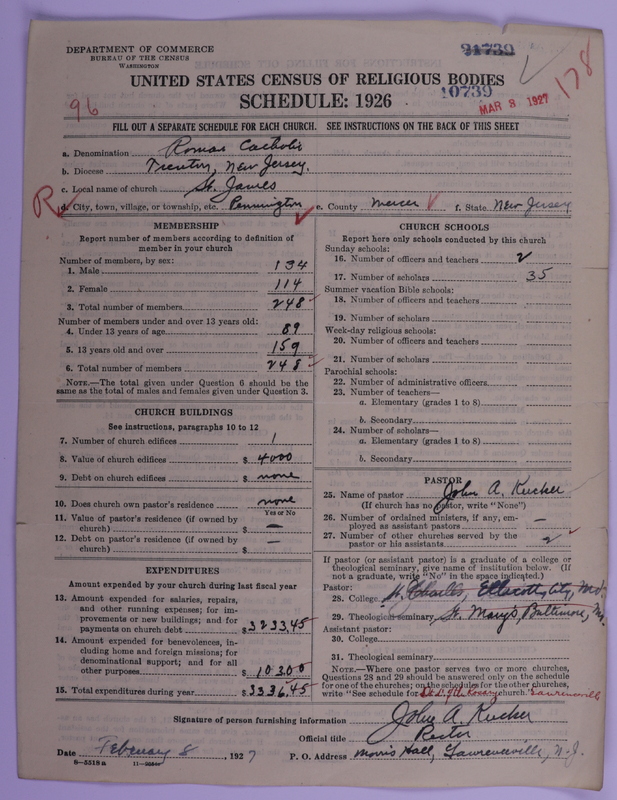 DEPARTMENT OF COMMERCE
BUREAU OF THE CENSUS
WASHINGTON
31739
UNITED STATES CENSUS OF RELIGIOUS BODIES
SCHEDULE: 1926
10739
MAR 8 1927
178
96
FILL OUT A SEPARATE SCHEDULE FOR EACH CHURCH. SEE INSTRUCTIONS ON THE BACK OF THIS SHEET
a. Denomination Roman Catholic
b. Diocese Trenton, New Jersey.
c. Local name of church St. James
R
d. City, town, village, or township, etc. Pennington e. County Mercer f. State New Jersey
MEMBERSHIP
Report number of members according to definition of
member in your church
Number of members, by sex:
1. Male 134
2. Female 114
3. Total number of members 248
Number of members under and over 13 years old:
4. Under 13 years of age 89
5. 13 years old and over 159
6. Total number of members 248
NOTE.—The total given under Question 6 should be the
same as the total of males and females given under Question 3.
CHURCH BUILDINGS
See instructions, paragraphs 10 to 12
7. Number of church edifices 1
8. Value of church edifices $ 4000
9. Debt on church edifices $ none
10. Does church own pastor's residence none
Yes or No
11. Value of pastor's residence (if owned by
church) $ —
12. Debt on pastor's residence (if owned by
church) $ —
EXPENDITURES
Amount expended by your church during last fiscal year
13. Amount expended for salaries, repairs,
and other running expenses; for im-
provements or new buildings; and for
payments on church debt $ 3233.45
14. Amount expended for benevolences, in-
cluding home and foreign missions; for
denominational support; and for all
other purposes $ 103.00
15. Total expenditures during year $ 3336.45
CHURCH SCHOOLS
Report here only schools conducted by this church
Sunday schools:
16. Number of officers and teachers 2
17. Number of scholars 35
Summer vacation Bible schools:
18. Number of officers and teachers
19. Number of scholars
Week-day religious schools:
20. Number of officers and teachers
21. Number of scholars
Parochial schools:
22. Number of administrative officers
23. Number of teachers—
a. Elementary (grades 1 to 8)
b. Secondary
24. Number of scholars—
a. Elementary (grades 1 to 8)
b. Secondary
PASTOR
25. Name of pastor John A. Kucker
(If church has no pastor, write "None")
26. Number of ordained ministers, if any, em-
ployed as assistant pastors —
27. Number of other churches served by the
pastor or his assistants 2
If pastor (or assistant pastor) is a graduate of a college or
theological seminary, give name of institution below. (If
not a graduate, write "No" in the space indicated.)
Pastor:
28. College St. Charles, Ellicott City, Md.
29. Theological seminary St. Mary's Baltimore, Md.
Assistant pastor:
30. College
31. Theological seminary
NOTE.—Where one pastor serves two or more churches,
Questions 28 and 29 should be answered only on the schedule
for one of the churches; on the schedules for the other churches,
write "See schedule for church." Lawrenceville
Signature of person furnishing information John A. Kucker
Official title Pastor
Date February 8, 1927 P. O. Address Morris Hall, Lawrenceville, N. J.
8—5518 a